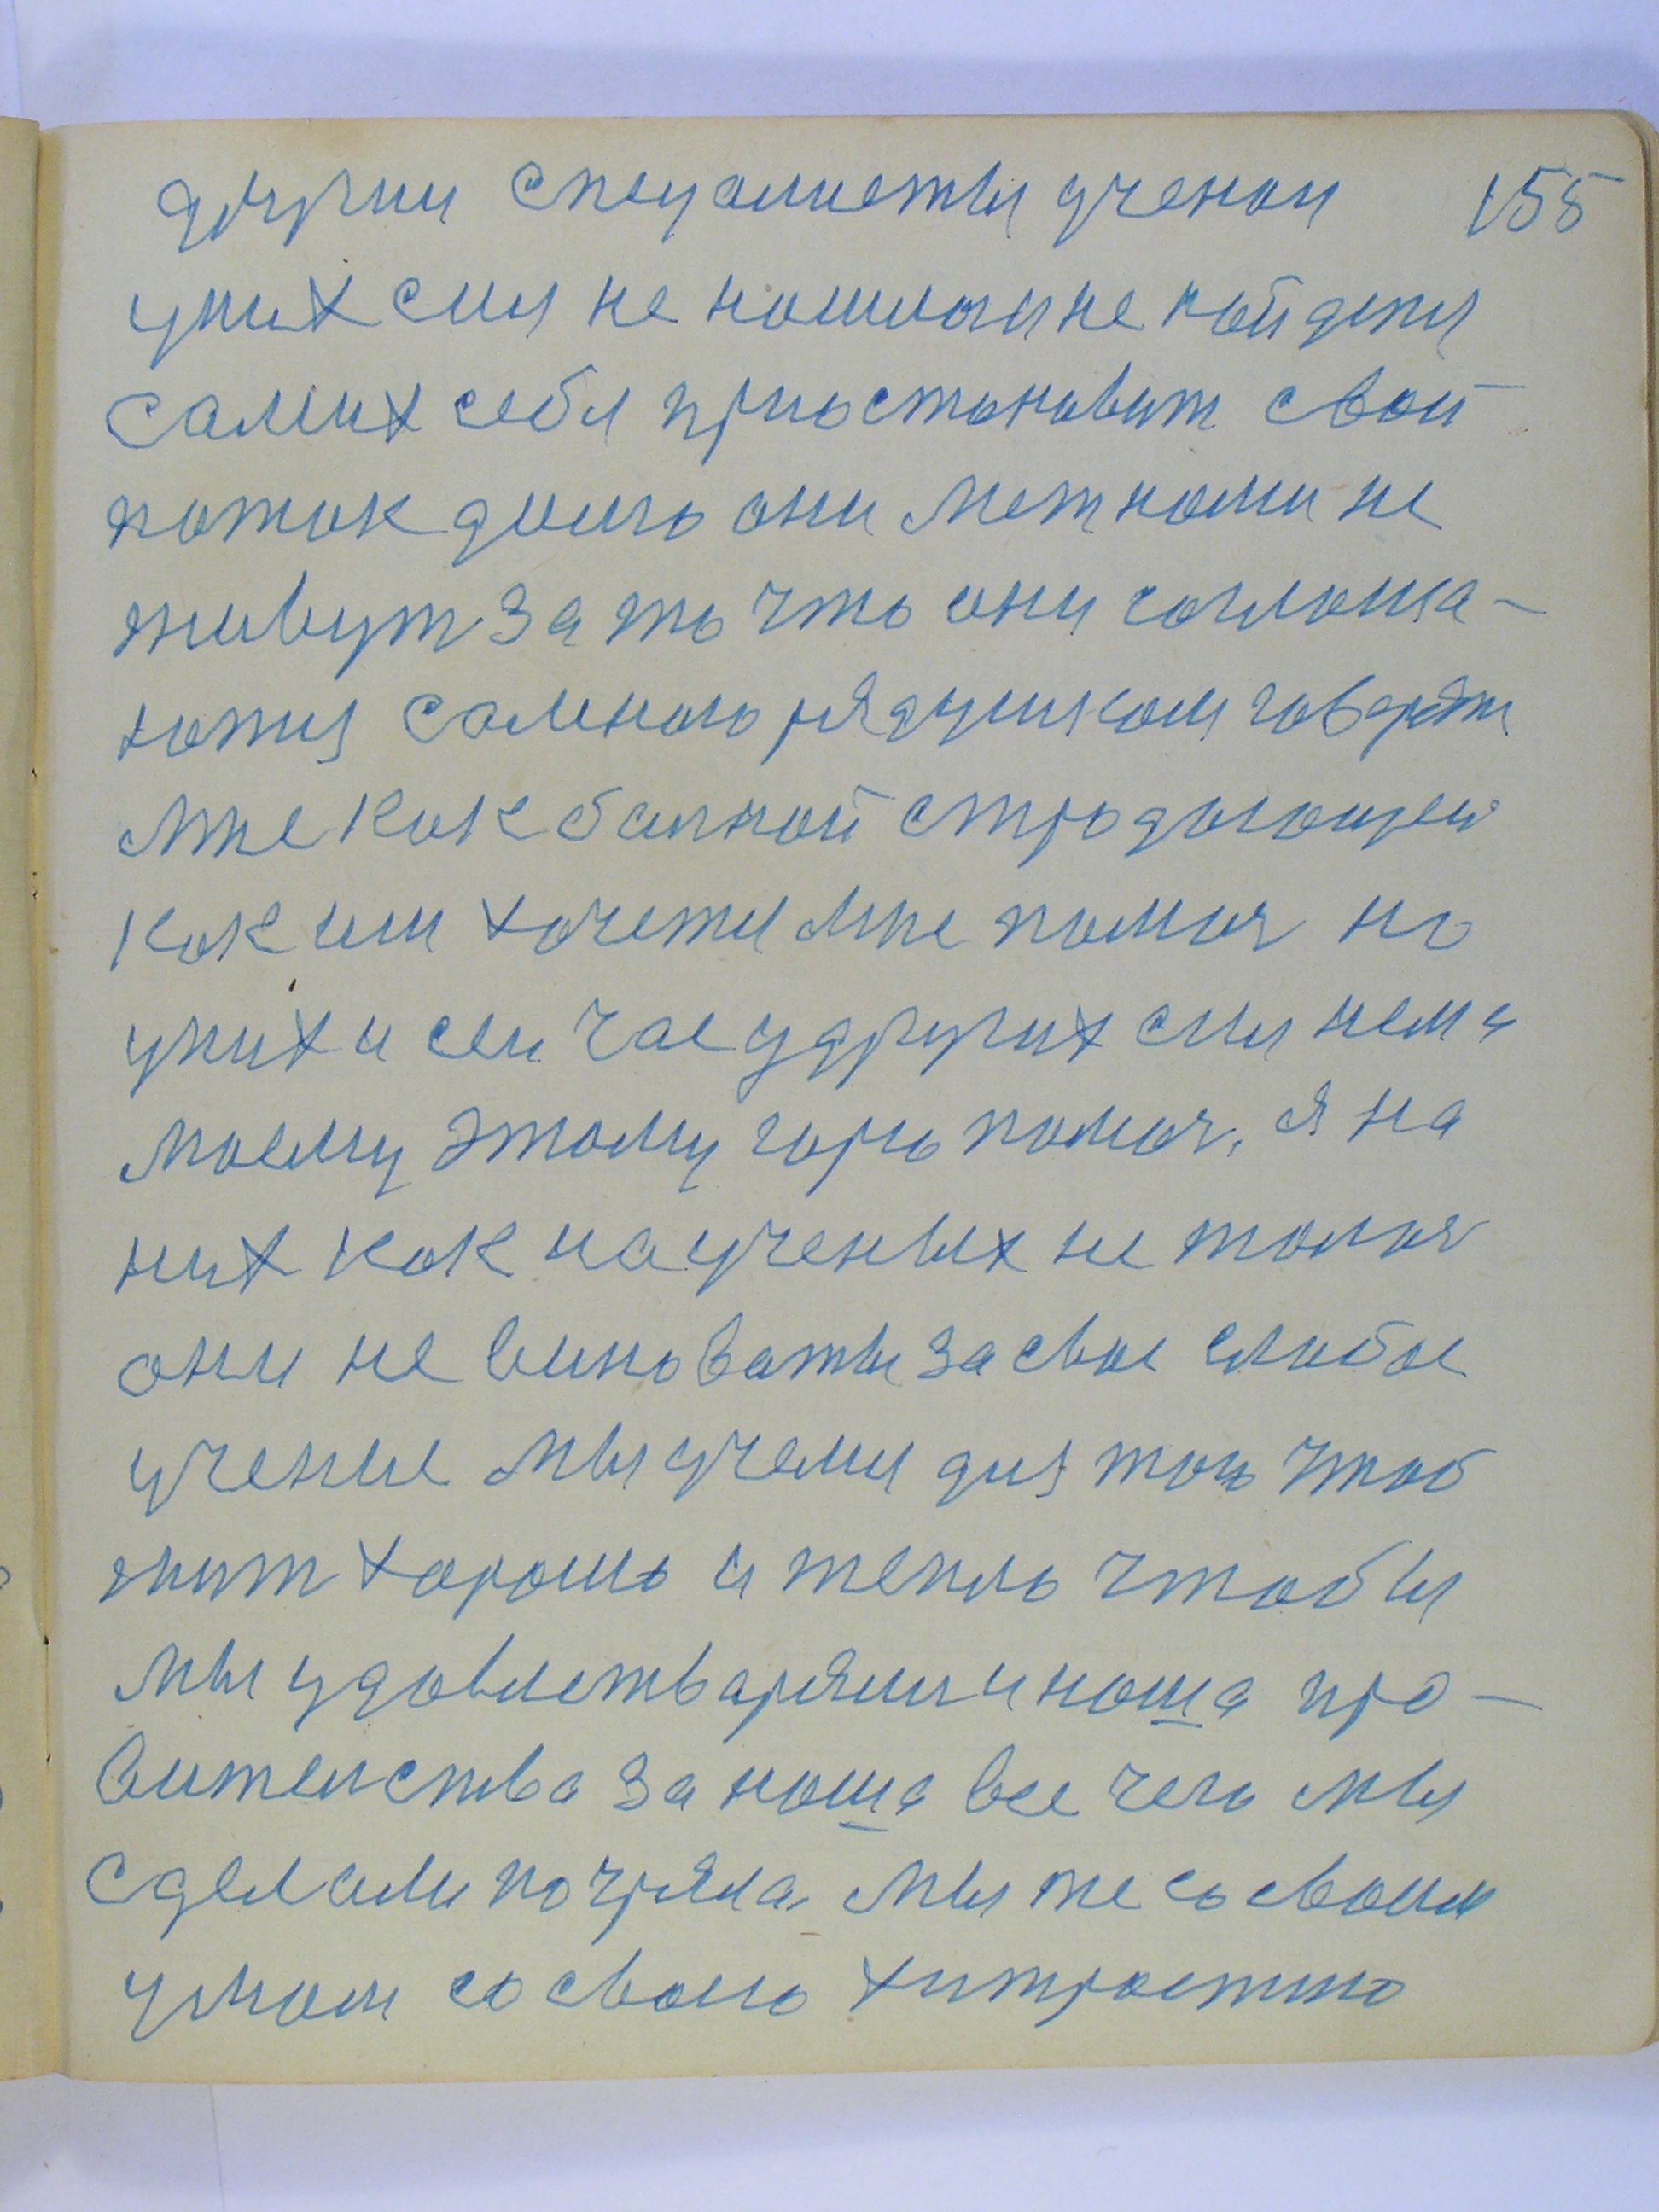 другии специалисты ученои 155
уних сил не нашлося не найдеця
самих себя приостоновит свой
поток дишо они мет номи не
живут За то что они соглоша-
юпия самною рядчиком говорят
мне как болной страдающей
как им хочется мне помоч но
уних и сей час у других сил нема
моему этому горю помоч, я на
них как на ученых не толоч
они не виноваты за свое слабое
ученые мы учеми для того чтоб
жит хорошо и тепло чтобы
мы удовлетваряли и ноша пра-
вителства за ноша все чего мы
сделали по зряла мы же со своим
умом со своею хитростию